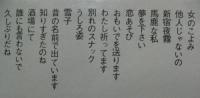 女のこよみ
他人じゃないの
新宿夜霧
馬鹿な私
夢を下さい
恋あそび
おもいでを送ります
わたし祈ってます
別れのスナック
うしろ姿
雪子
昔の名前で出ています
知りすぎたのね
酒場にて
誰にも言わないで
久しぶりだね